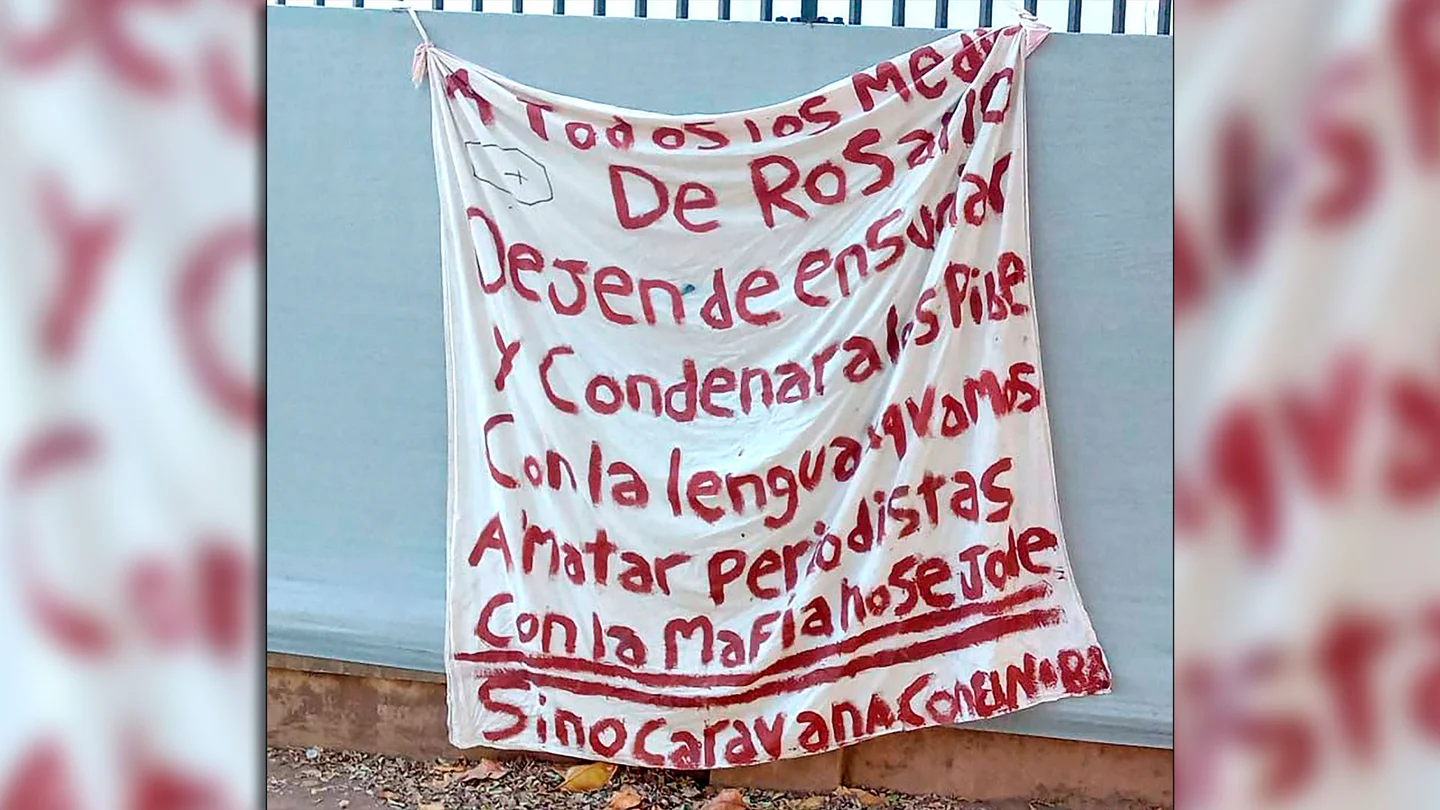 A Todos los Medi
De Rosario
Dejen de ensuNar
Y Condenar a los Pibe
Con la lengua qvamos
A Matar Periodistas
Con la Mafia no se Jode
Sino Caravana Con El N